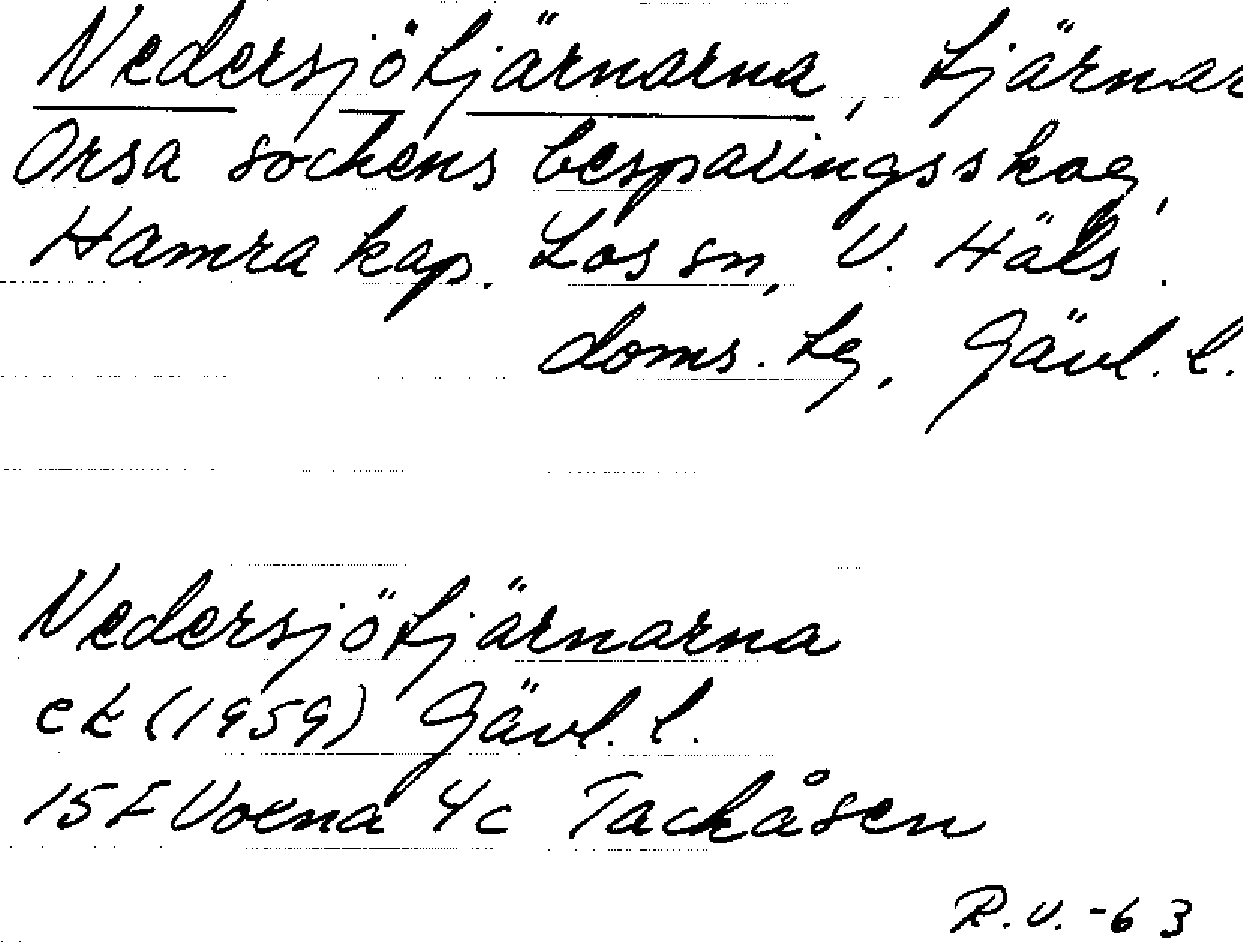 Nedersjötjärnarna, tjärnar
Orsa sockens besparingsskog,
Hamra kap. Los sn, V. Häls.
doms. tg, Gävl. l.
Nedersjötjärnarna
ek (1959) Gävl. l.
15F Voxna 4c Tackåsen
R.V. -63